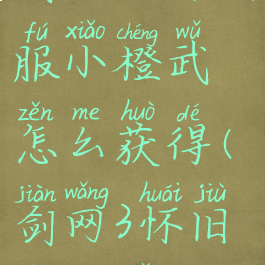 fú xiǎo chéng wǔ
服小橙武
zěn me huò dé
怎么获得(
jiàn wǎng huái jiù
剑网3怀旧